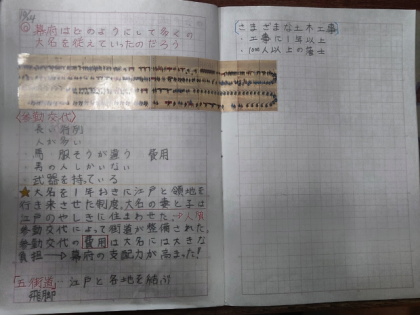 幕府はどのようにして多くの
大名を従えていったのだろう
〈参勤交代〉
・長い行列
人が多い
・馬・服そうが違う 費用
・男の人しかいない
・武器を持っている
★大名を1年おきに江戸と領地を
行き来させた制度。大名の妻と子は
江戸のやしきに住まわせた。→人質
参勤交代によって街道が整備された。
参勤交代の費用は大名には大きな
負担→幕府の支配力が高まった!
五街道…江戸と各地を結ぶ
飛脚
さまざまな土木工事
・工事に1年以上
・1000人以上の藩士